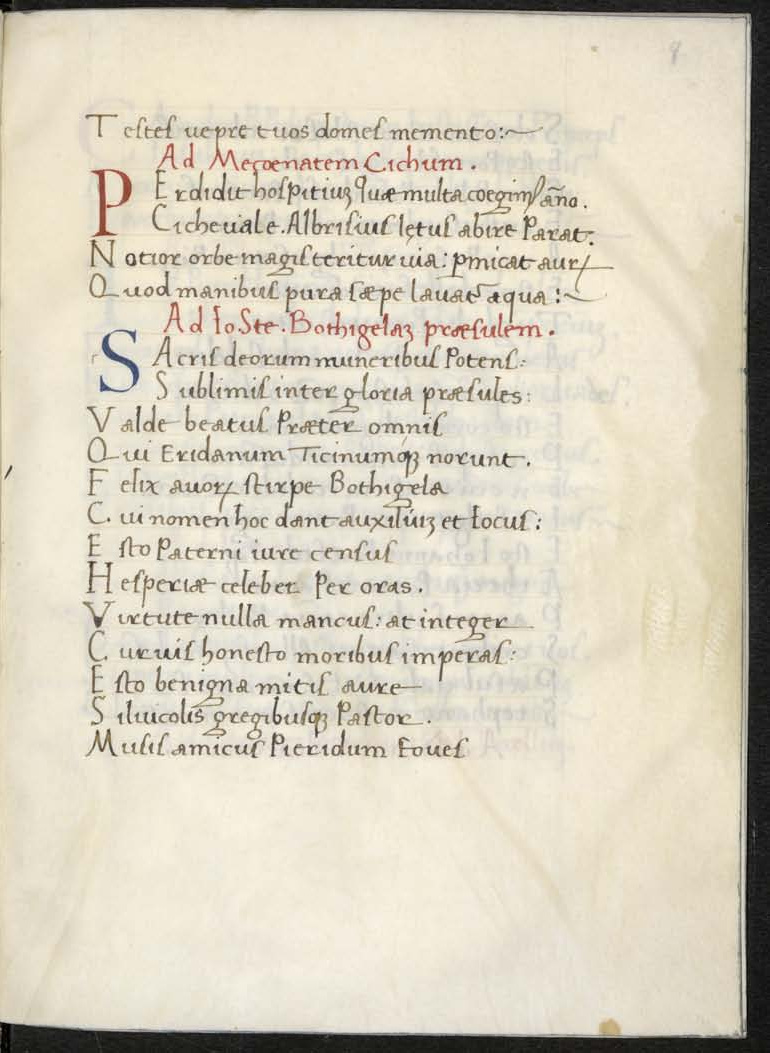 8
Testes uepre tuos domes memento:~
Ad Meçoenatem Cichum.
PErdidit hospitiuꝫ Quæ multa coegimꝰ año.
Ciche uale. Albrisius lętus abire Parat.
Notior orbe magis teritur uia: ꝑmicat aurꝝ
Quod manibus pura sæpe lauat᷑ aqua:~
Ad Io. Ste. Bothigelaꝫ præsulem.
SAcris deorum muneribus Potens:
Sublimis inter gloria præsules:
Valde beatus Præter omnis
Qui Eridanum Ticinumqꝫ norunt.
Felix auorꝝ stirpe Bothigela
Cui nomen hoc dant auxiliũꝫ et Locus:
Esto Paterni iure census
Hesperiæ celeber Per oras.
Virtute nulla mancus: at integer
Curuis honesto moribus imperas:
Esto benigna mitis aure
Siluicolis gregibusqꝫ Pastor.
Musis amicus Pieridum Foues